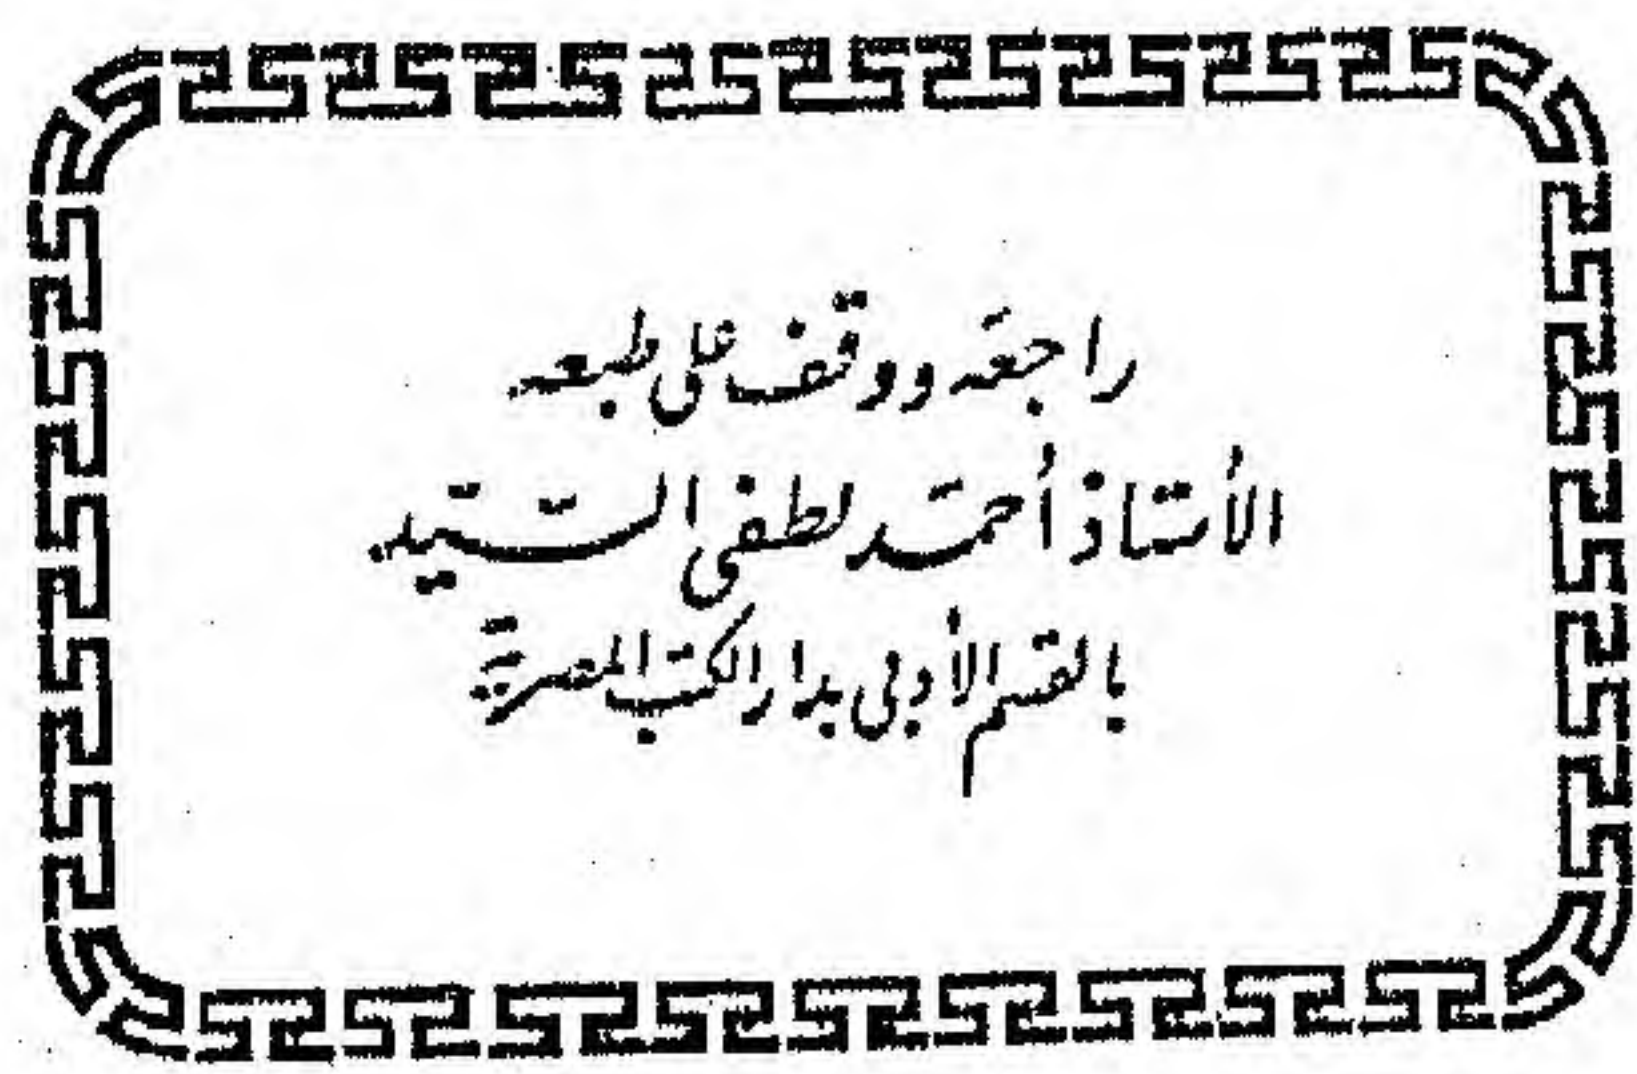 راجعه ووقف على طبعه
الأستاذ أحمد لطفى السيد
بالقسم الأدبى بدار الكتب المصرية